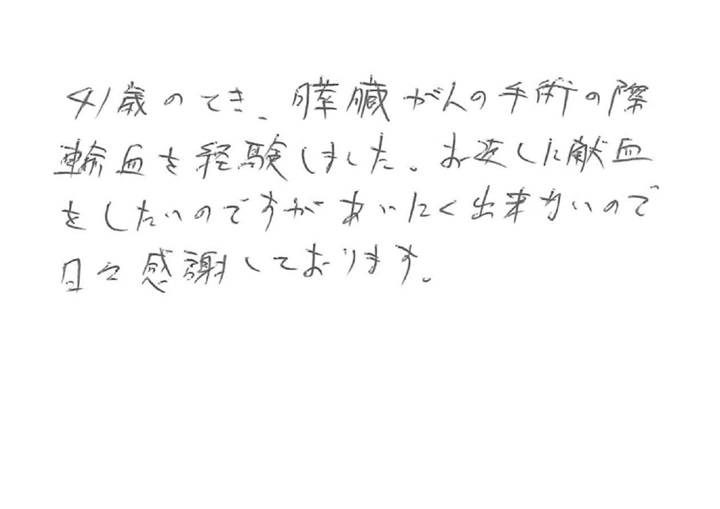 41歳のてき、膵臓がんの手術の際
輸血を経験しました。お返しに献血
をしたいのですがあいにく出来ないので
日々感謝しております。